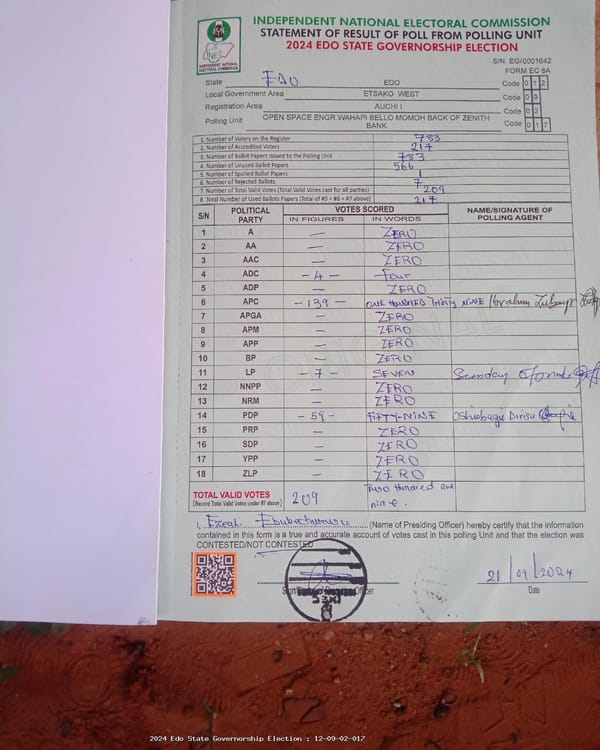 INDEPENDENT NATIONAL ELECTORAL COMMISSION
STATEMENT OF RESULT OF POLL FROM POLLING UNIT
2024 EDO STATE GOVERNORSHIP ELECTION
INEC
INDEPENDENT NATIONAL ELECTORAL COMMISSION
S/N. EG/0001642
FORM EC 8A
State EDO EDO Code 0 1 2
Local Government Area ETSAKO WEST Code 0 9
Registration Area AUCHI I Code 0 2
Polling Unit OPEN SPACE ENGR.WAHAPI BELLO MOMOH BACK OF ZENITH BANK Code 0 1 7
1. Number of Voters on the Register 783
2. Number of Accredited Voters 217
3. Number of Ballot Papers Issued to the Polling Unit 783
4. Number of Unused Ballot Papers 566
5. Number of Spoiled Ballot Papers 1
6. Number of Rejected Ballots 7
7. Number of Total Valid Votes (Total Valid Votes cast for all parties) 209
8. Total Number of Used Ballots Papers (Total of #5 + #6 + #7 above) 217
S/N POLITICAL PARTY VOTES SCORED NAME/SIGNATURE OF POLLING AGENT
IN FIGURES IN WORDS
1 A — ZERO
2 AA — ZERO
3 AAC — ZERO
4 ADC -4- Four
5 ADP — ZERO
6 APC -139- ONE HUNDRED THIRTY NINE Ibrahim
7 APGA — ZERO
8 APM — ZERO
9 APP — ZERO
10 BP — ZERO
11 LP -7- SEVEN Sunday
12 NNPP — ZERO
13 NRM — ZERO
14 PDP -59- FIFTY-NINE Dirisu
15 PRP — ZERO
16 SDP — ZERO
17 YPP — ZERO
18 ZLP — ZERO
TOTAL VALID VOTES 209 Two Hundred and nine.
(Record Total Valid Votes under #7 above)
I, (Name of Presiding Officer) hereby certify that the information
contained in this form is a true and accurate account of votes cast in this polling Unit and that the election was
CONTESTED/NOT CONTESTED
Officer
21/09/2024
Date
2024 Edo State Governorship Election : 12-09-02-017